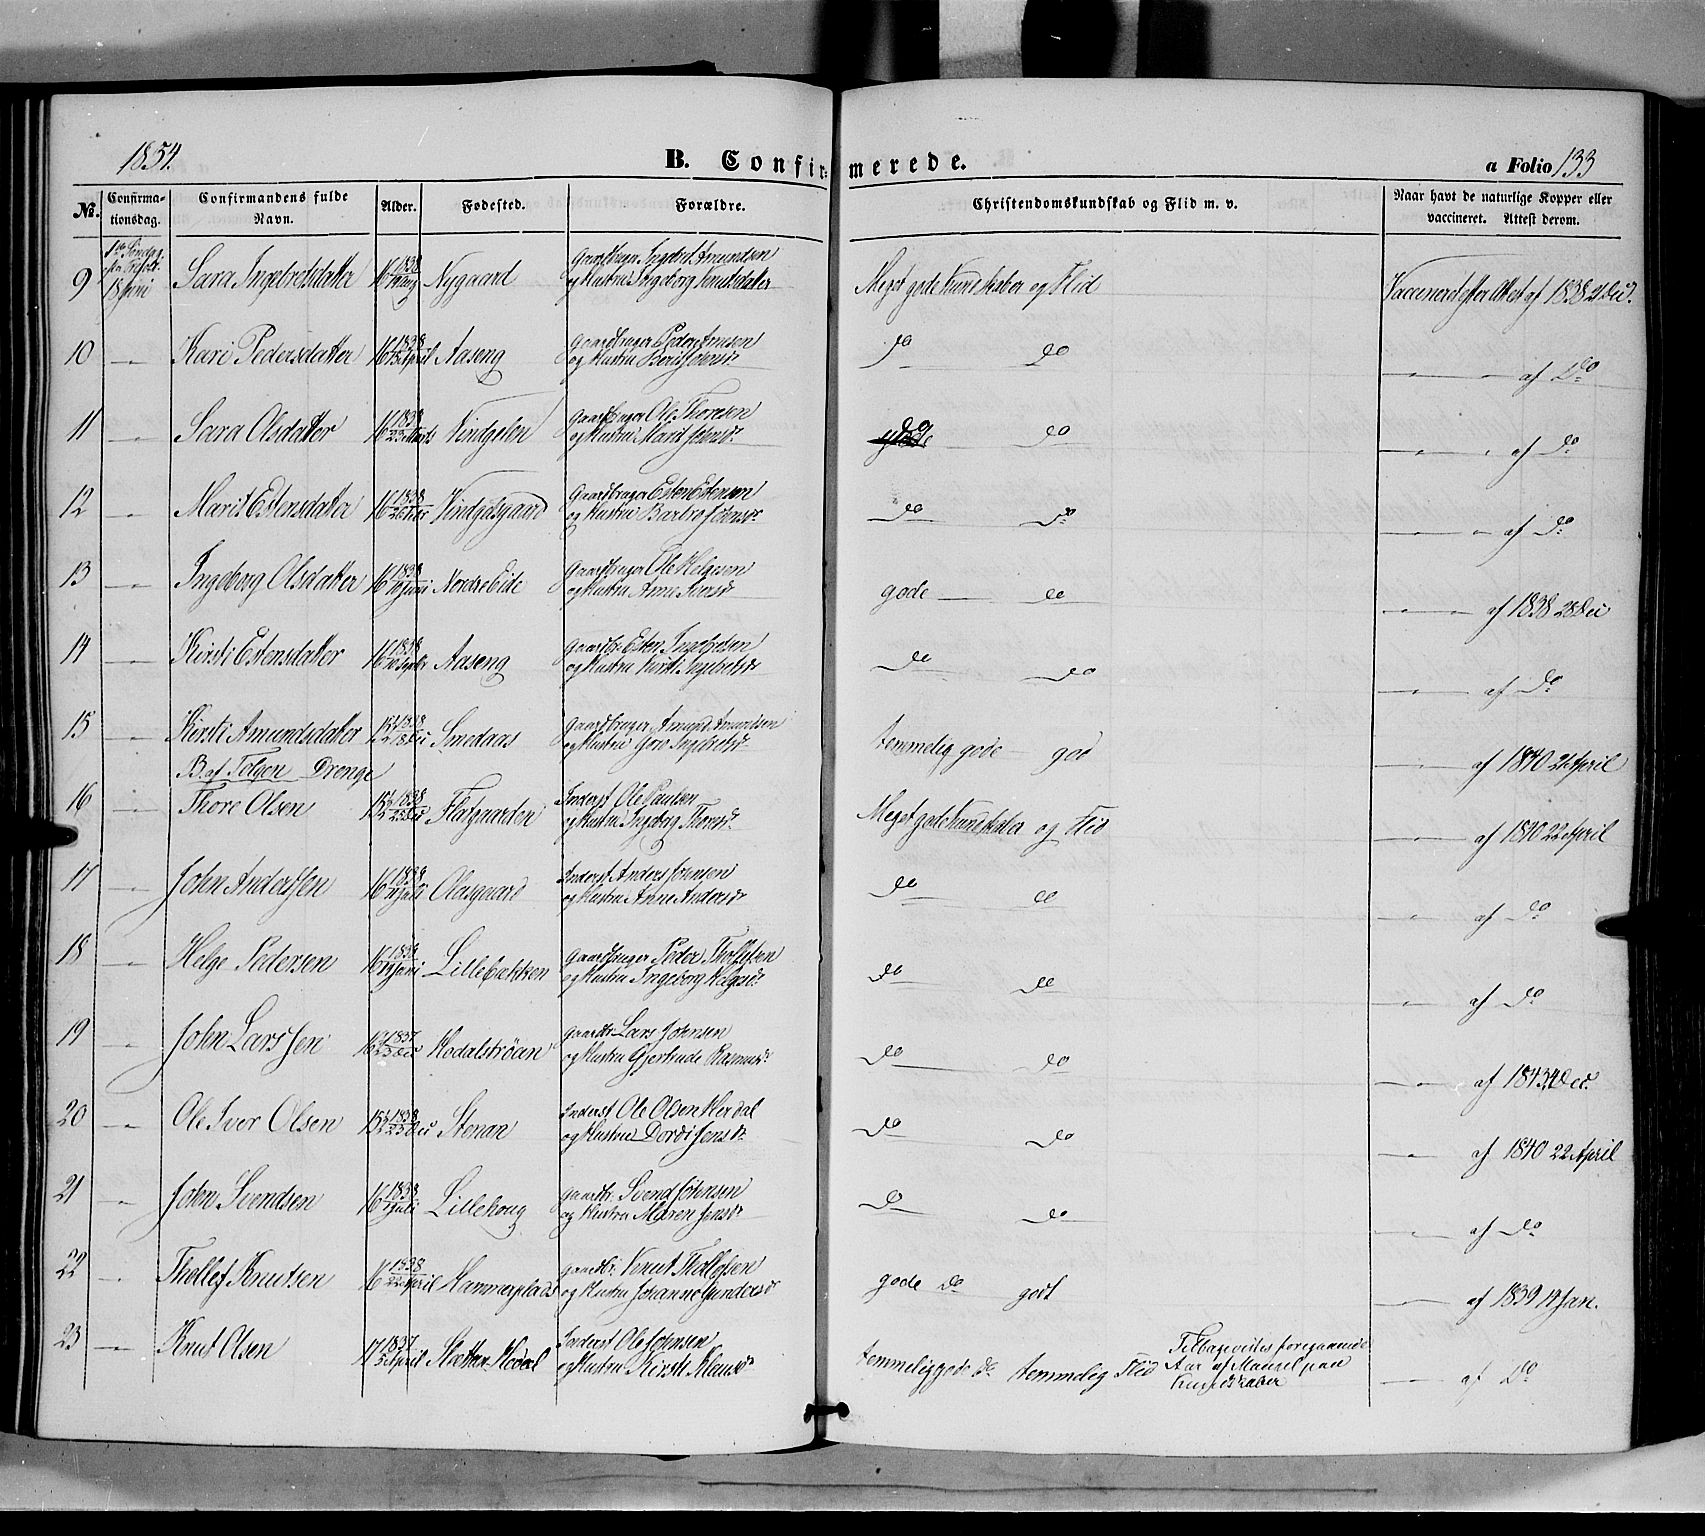 1854.
B. Confirmerede.
a Folio 133
No. Confirmationsdag. Confirmandens fulde Navn. Alder. Fødested. Forældre. Christendomskundskab og Flid m. v. Naar havt de naturlige Kopper eller vaccineret. Attest derom.
9 18 Juni Sara Ingebretsdatter 16 1838 Nygaard Ingebret Amundsen og Hustru Ingeborg Knutsdatter Meget gode Kundskaber og Flid Vaccinered efter Attest af 1838 21 Dec.
10 — Kari Pedersdatter 16 1838 April Aaseng Gaardbruger Peder Arnesen og Hustru Berit Johnsdr do do — af Do
11 — Sara Olsdatter 16 1838 Vingelen Gaardbruger Ole Thoresen og Hustru Marit Johnsdr do do — af Do
12 — Marit Estensdatter 16 1838 Vingelsgaard Gaardbruger Esten Estensen og Hustru Barbro Johnsdr do do — af Do
13 — Ingeborg Olsdatter 16 1838 Juni Nordre Eide Gaardbruger Ole Helgesen og Hustru Anne Iversdr gode — do — af 1838 28 Dec
14 — Kirsti Estensdatter 16 1838 Aaseng Gaardbr. Esten Ingebretsen og Hustru Kirsti Ingebretsdr do do — af Do
15 — Kirsti Amundsdatter 15½ 1838 Dec Smedaas Gaardbruger Amund Amundsen og Hustru Goro Ingebretsdr temmelig gode god — af 1840 21 April
B. af Tolgen Drenge
16 — Thore Olsen 15½ 1838 Flatgaarden Inderst Ole Paulsen og Hustru Ingeborg Thoresdr. Meget gode Kundskaber og Flid — af 1840 22 April
17 — John Anderssen 16 1838 Juli Olasgaard Inderst Anders Johnsen og Hustru Anne Andersdr do do — af Do
18 — Helge Pedersen 16 1838 Juni Lillebækken Gaardbruger Peder Thollefsen og Hustru Ingeborg Helgesdr do do — af Do
19 — John Larssen 16 1837 Hodalstrøen Gaardbr. Lars Johnsen og Hustru Gjertrude Rasmusdr do do — af 1843 4 Dec.
20 — Ole Iver Olsen 15½ 1838 Stenan Inderst Ole Olsen Herdal og Hustru Dordi Jensdr do do — af 1840 22 April
21 — John Svendsen 16 1838 Juli Lillehoug Gaardbr. Svend Johnsen og Hustru Maren Jensdr do do — af Do
22 — Thollef Knutsen 16 1838 22 April Hammerplads Gaardbr. Knut Thollefsen og Hustru Johanne Gundersdr gode do godt — af 1839 14 Jan.
23 — Knut Olsen 17 1837 5 April Hodal Inderst Ole Johnsen og Hustru Kirsti Klausdr temmelig gode do temmelig Flid Tilbagevistes foregaaende Aar af Mangel paa Kundskaber — af Do